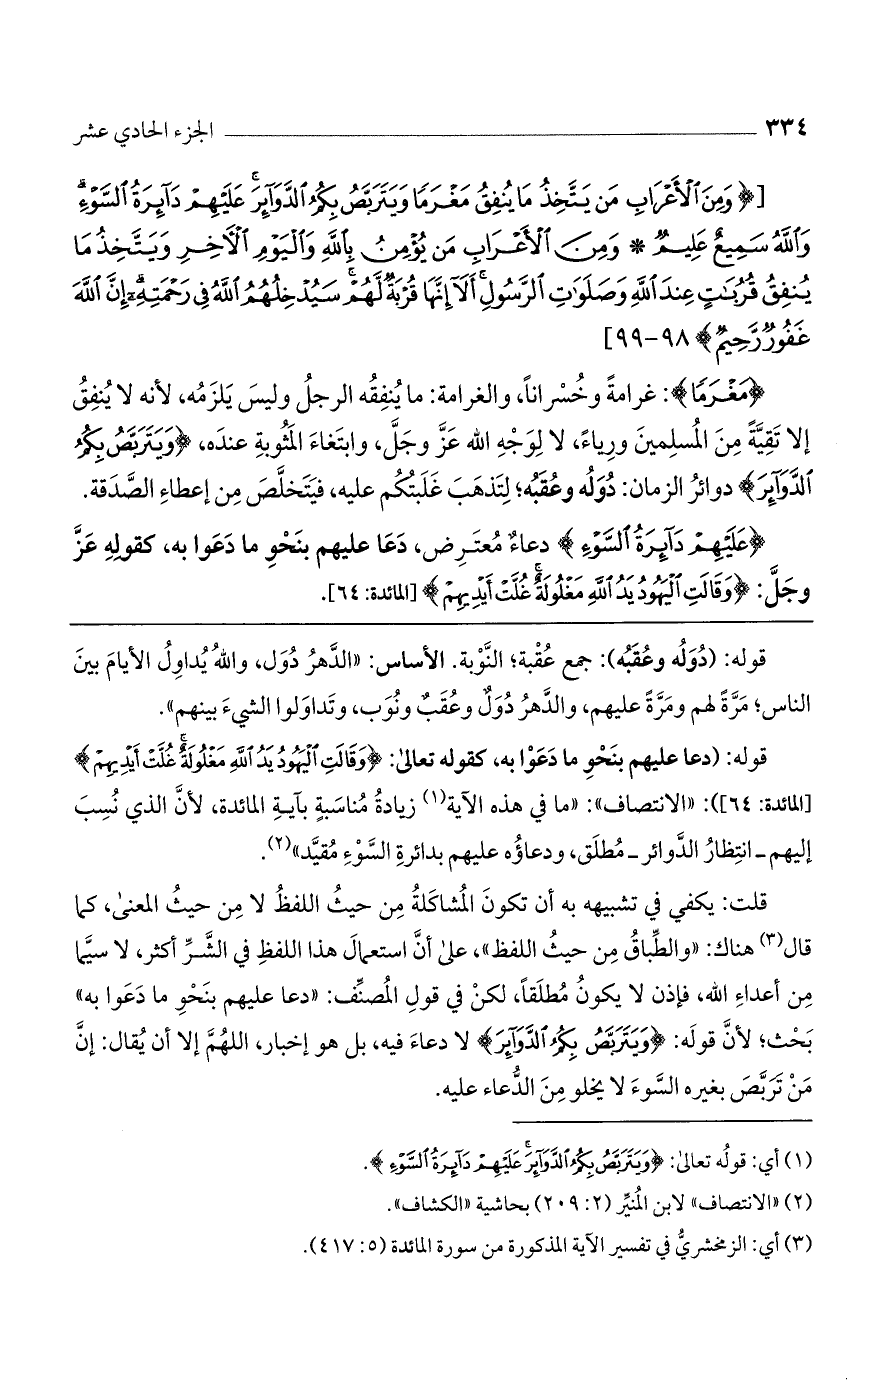 ٣٣٤ ــــــــــــــــــــــــــــــــــــــــ الجزء الحادي عشر
[﴿وَمِنَ ٱلْأَعْرَابِ مَن يَتَّخِذُ مَا يُنفِقُ مَغْرَمًا وَيَتَرَبَّصُ بِكُمُ ٱلدَّوَآئِرَ ۚ عَلَيْهِمْ دَآئِرَةُ ٱلسَّوْءِ ۗ
وَٱللَّهُ سَمِيعٌ عَلِيمٌ * وَمِنَ ٱلْأَعْرَابِ مَن يُؤْمِنُ بِٱللَّهِ وَٱلْيَوْمِ ٱلْآخِرِ وَيَتَّخِذُ مَا
يُنفِقُ قُرُبَٰتٍ عِندَ ٱللَّهِ وَصَلَوَٰتِ ٱلرَّسُولِ ۚ أَلَآ إِنَّهَا قُرْبَةٌ لَّهُمْ ۚ سَيُدْخِلُهُمُ ٱللَّهُ فِى رَحْمَتِهِۦٓ ۗ إِنَّ ٱللَّهَ
غَفُورٌ رَّحِيمٌ﴾ ٩٨-٩٩]
﴿مَغْرَمًا﴾: غرامةً وخُسْراناً، والغرامة: ما يُنفِقُه الرجلُ وليسَ يَلزَمُه، لأنه لا يُنفِقُ
إلا تَقِيَّةً مِنَ المُسلِمينَ ورِياءً، لا لِوَجْهِ الله عَزَّ وجَلَّ، وابتَغاءَ المَثُوبةِ عندَه، ﴿وَيَتَرَبَّصُ بِكُمُ
ٱلدَّوَآئِرَ﴾ دوائرُ الزمان: دُوَلُه وعُقَبُه؛ لِتَذهَبَ غَلَبتُكُم عليه، فيَتَخلَّصَ مِن إعطاءِ الصَّدَقة.
﴿عَلَيْهِمْ دَآئِرَةُ ٱلسَّوْءِ﴾ دعاءٌ مُعتَرِض، دَعَا عليهم بنَحْوِ ما دَعَوا به، كقولِهِ عَزَّ
وجَلَّ: ﴿وَقَالَتِ ٱلْيَهُودُ يَدُ ٱللَّهِ مَغْلُولَةٌ ۚ غُلَّتْ أَيْدِيهِمْ﴾ [المائدة: ٦٤].
قوله: (دُوَلُه وعُقَبُه): جمع عُقْبة؛ النَّوْبة. الأساس: «الدَّهرُ دُوَل، واللهُ يُداوِلُ الأيامَ بينَ
الناس؛ مَرَّةً لهم ومَرَّةً عليهم، والدَّهرُ دُوَلٌ وعُقَبٌ ونُوَب، وتَداوَلوا الشيءَ بينهم».
قوله: (دعا عليهم بنَحْوِ ما دَعَوْا به، كقوله تعالىٰ: ﴿وَقَالَتِ ٱلْيَهُودُ يَدُ ٱللَّهِ مَغْلُولَةٌ ۚ غُلَّتْ أَيْدِيهِمْ﴾
[المائدة: ٦٤]): «الانتصاف»: «ما في هذه الآية(١) زيادةُ مُناسَبةٍ بآيةِ المائدة، لأنَّ الذي نُسِبَ
إليهم ـ انتِظارُ الدَّوائر ـ مُطلَق، ودعاؤُه عليهم بدائرةِ السَّوْءِ مُقيَّد»(٢).
قلت: يكفي في تشبيهه به أن تكونَ المُشاكَلةُ مِن حيثُ اللفظُ لا مِن حيثُ المعنىٰ، كما
قال(٣) هناك: «والطِّباقُ مِن حيثُ اللفظ»، علىٰ أنَّ استعمالَ هذا اللفظِ في الشَّرِّ أكثر، لا سيَّما
مِن أعداءِ الله، فإذن لا يكونُ مُطلَقاً، لكنْ في قولِ المُصنِّف: «دعا عليهم بنَحْوِ ما دَعَوا به»
بَحْث؛ لأنَّ قولَه: ﴿وَيَتَرَبَّصُ بِكُمُ ٱلدَّوَآئِرَ﴾ لا دعاءَ فيه، بل هو إخبار، اللهُمَّ إلا أن يُقال: إنَّ
مَنْ تَرَبَّصَ بغيره السَّوءَ لا يخلو مِنَ الدُّعاء عليه.
(١) أي: قولُه تعالىٰ: ﴿وَيَتَرَبَّصُ بِكُمُ ٱلدَّوَآئِرَ ۚ عَلَيْهِمْ دَآئِرَةُ ٱلسَّوْءِ﴾.
(٢) «الانتصاف» لابن المُنيِّر (٢: ٢٠٩) بحاشية «الكشاف».
(٣) أي: الزمخشريُّ في تفسير الآية المذكورة من سورة المائدة (٥: ٤١٧).